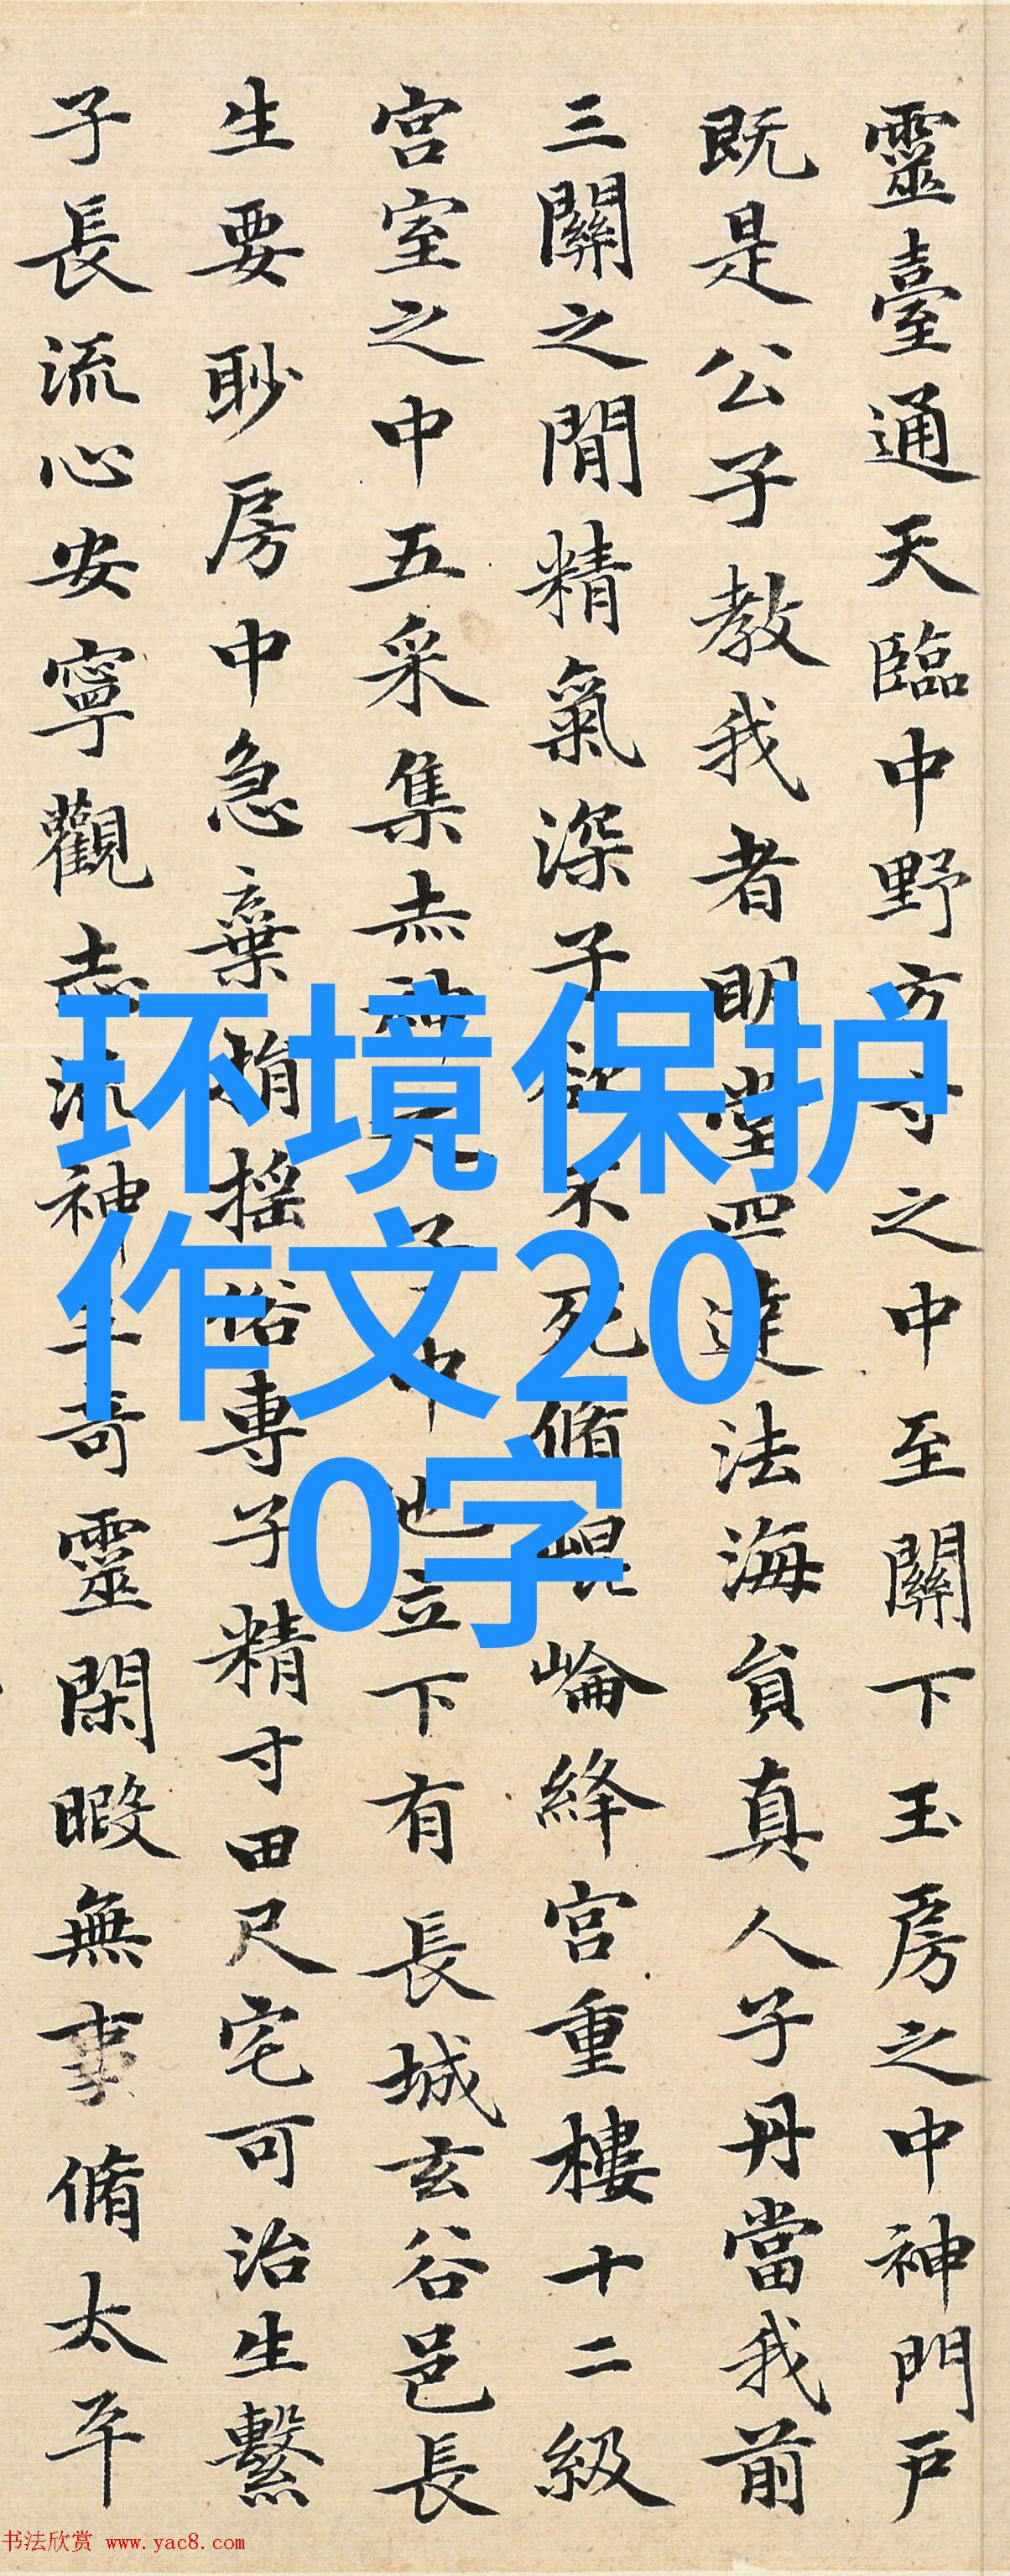 靈臺通天臨中野方寸之中至關下玉房之中神門戶
既是公子教我者明堂四達法海員真人子丹當我前
三關之間精氣深子欲不死脩崐崘絳宮重樓十二級
宮室之中五采集赤神之子中池立下有長城玄谷邑長
生要眇房中急棄捐搖俗專子精寸田尺宅可治生繫
子長流心安寧觀志流神三奇靈閑暇無事脩太平
环境保护
作文20
0字
书法欣赏 www.yac8.com